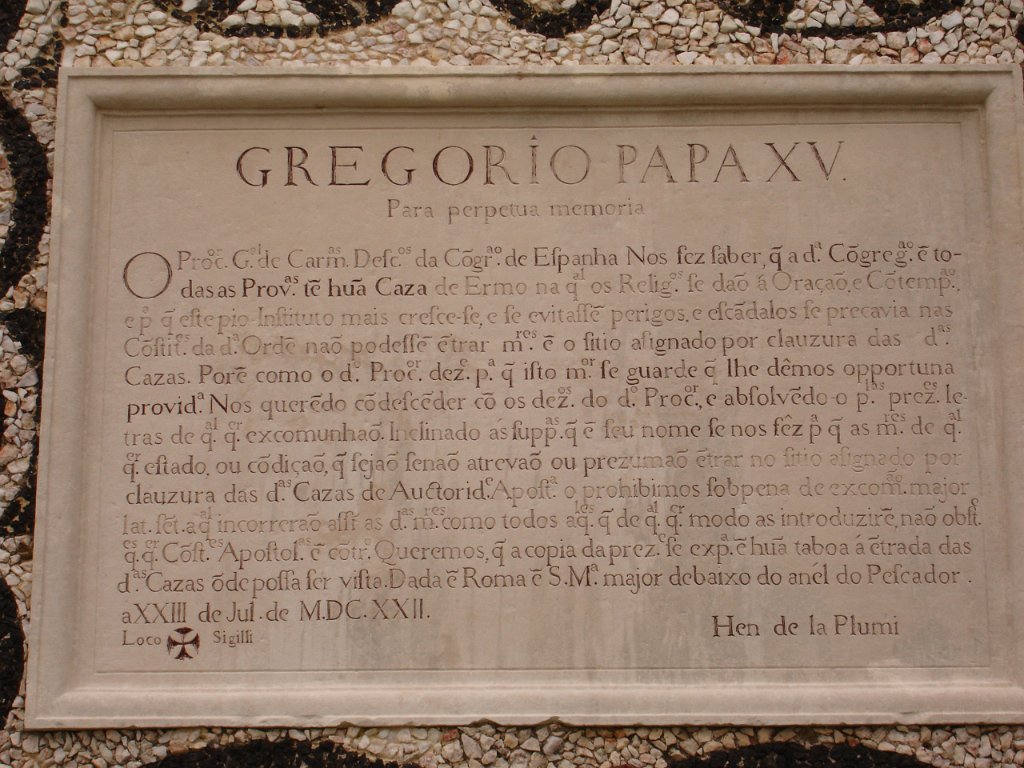 GREGORIO PAPA XV.
Para perpetua memoria
O Proc.or G.al de Carm. Desc.os da Cõgr.ao de Eſpanha Nos fez ſaber, q̃ a d.a Cõgreg.ao ẽ to-
das as Prov.as tẽ huã Caza de Ermo na q.al os Relig.os ſe daõ á Oraçaõ, e Cõtemp.ao,
e p.a q̃ eſte pio Inſtituto mais creſce-ſe, e ſe evitaſſẽ perigos, e eſcãdalos ſe precavia nas
Cõſtit.es da d.a Ordẽ naõ podeſſẽ ẽtrar m.res ẽ o ſitio aſignado por clauzura das d.as
Cazas. Porẽ como o d.o Proc.or dez.e p.a q̃ iſto m.or ſe guarde q̃ lhe dêmos opportuna
provid.a Nos querẽdo cõdeſcẽder cõ os dez.os do d.o Proc.or, e abſolvẽdo o p.las prez.es le-
tras de q.al q.er excomunhaõ. Inclinado as ſupp.as q̃ ẽ ſeu nome ſe nos fêz p.a q̃ as m.res de q.al
q.er eſtado, ou cõdiçaõ, q̃ ſejaõ ſenaõ atrevaõ ou prezumaõ ẽtrar no ſitio aſignado por
clauzura das d.as Cazas de Auctorid.e Apoſt.a o prohibimos ſobpena de excom.ao major
lat. ſẽt. a q.al incorreraõ aſſĩ as d.as m.res como todos aq.les q̃ de q.al q.er modo as introduzirẽ, naõ obſt.
q.es q.er Cõſt.es Apoſtol.as ẽ cõtr.o Queremos, q̃ a copia da prez.e ſe exp.a ẽ huã taboa á ẽtrada das
d.as Cazas õde poſſa ſer viſta. Dada ẽ Roma ẽ S. M.a major debaixo do anél do Peſcador.
a XXIII de Jul. de M.DC.XXII.
Loco Sigilli
Hen de la Plumi